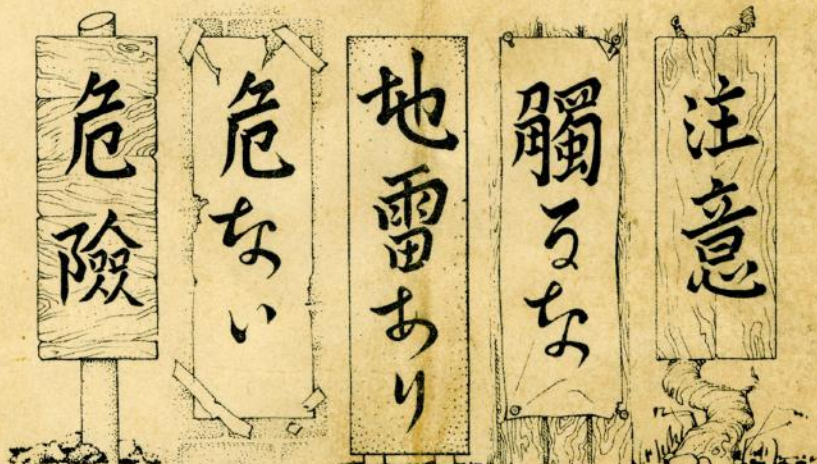 注意
觸るな
地雷あり
危ない
危險